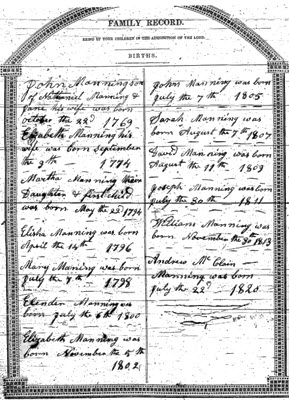 FAMILY RECORD.
BRING UP YOUR CHILDREN IN THE ADMONITION OF THE LORD.
BIRTHS.
John Manning son
of Nathaniel Maning &
Jane his wife was born
octobr the 22d 1769
Elizabeth Maning his
wife was born September
the 9th 1774
Martha Manning their
Daughter & first child
was born May the 22d 1794
Elisha Manning was born
April the 14th 1796
Mary Maning was born
July the 7th 1798
Elender Manning was
born July the 6th 1800
Elizabeth Manning was
born November the 5th
1802
John Manning was born
July the 7th 1805
Sarah Manning was
born August the 7th 1807
David Manning was born
August the 11th 1809
Joseph Manning was born
July the 30th 1811
William Manning was
born November the 30 1813
Andrew Mc Clain
Manning was born
July the 22d 1820